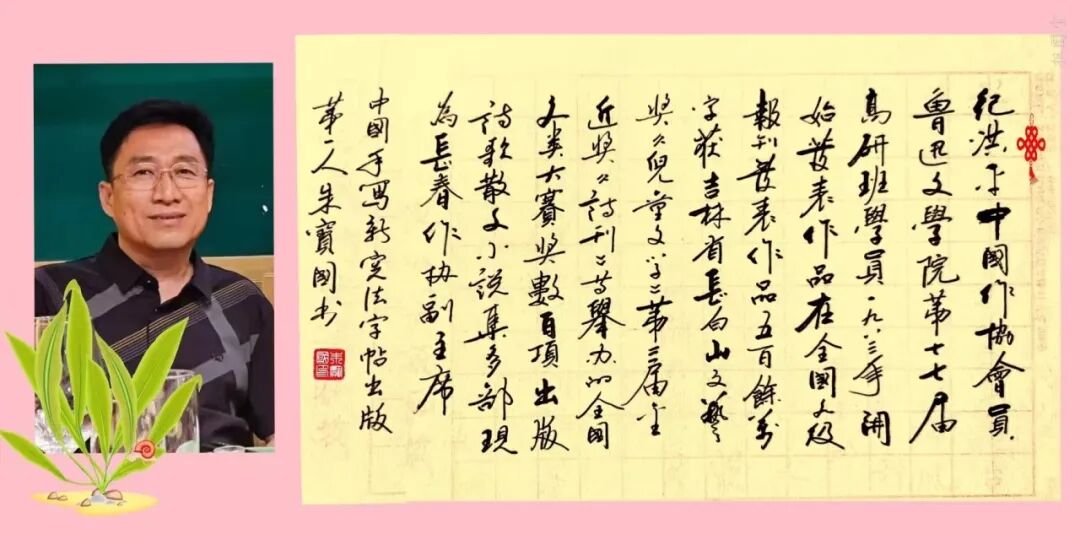 纪洪平中國作協會員
魯迅文學院第十七届
高研班學員一九八三年開
始發表作品在全國各级
報刊發表作品五百餘萬
字获吉林省長白山文藝
奖《兒童文学》第三届金
近奖《詩刊》等舉办的全國
各类大賽奖數百項出版
詩歌散文小說集多部現
為長春作协副主席
中國手写新宪法字帖出版
第一人朱寶國书